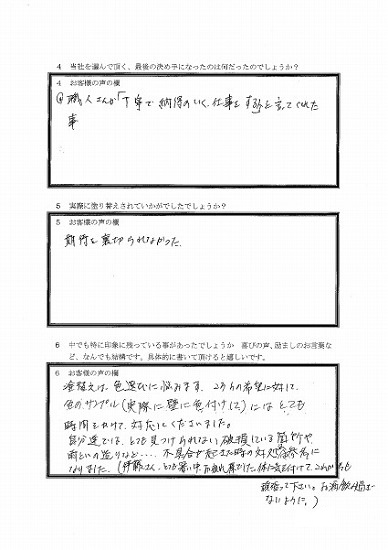 4 当社を選んで頂く、最後の決め手になったのは何だったのでしょうか?
4 お客様の声の欄
職人さんが「丁寧で納得のいく仕事をする」と言ってくれた
事
5 実際に塗り替えされていかがでしたでしょうか?
5 お客様の声の欄
期待を裏切られなかった
6 中でも特に印象に残っている事があったでしょうか 喜びの声、励ましのお言葉な
ど、なんでも結構です。具体的に書いて頂けると嬉しいです。
6 お客様の声の欄
塗替えは、色選びに悩みます。こちらの希望に対して
色のサンプル(実際に壁に色付けして)にはとても
時間をかけて、対応してくださいました。
自分達では、とても見つけられない破損している箇所や
雨といの造りなど・・・・不具合が起きた時の対処等参考に
なりました。(伊藤さん、とても暑い中お疲れ様でした。体に気を付けて、これからも
頑張って下さい。お酒飲み過ぎ
ないように。)